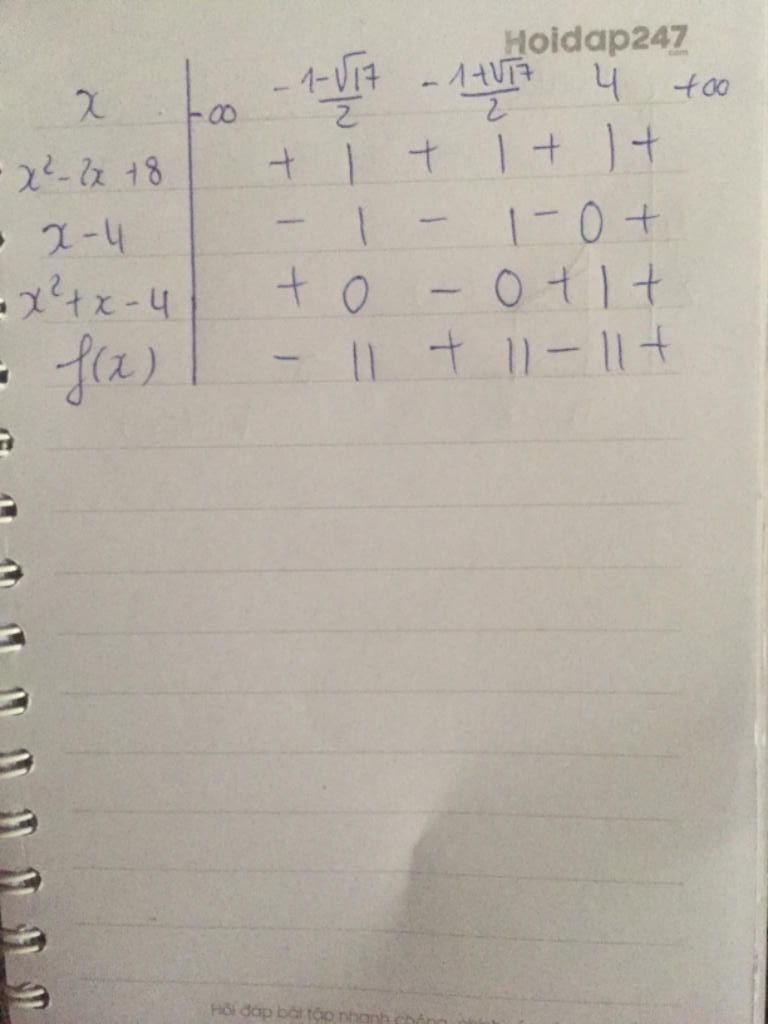 Hoidap247
.com
x -∞ -1-√17/2 -1+√17/2 4 +∞
x²-2x+8 + | + | + | +
x-4 - | - | - 0 +
x²+x-4 + 0 - 0 + | +
f(x) - || + || - || +
Hỏi đáp bài tập nhanh chóng,